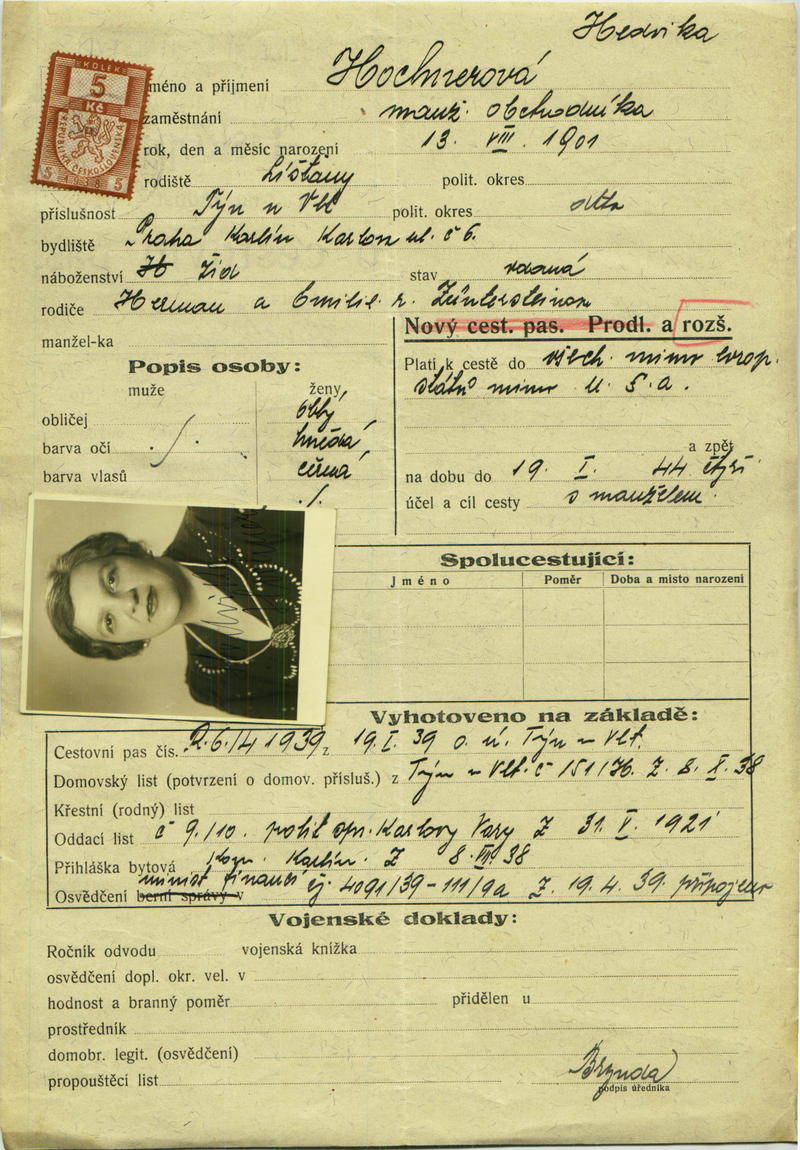 Hedvika
KOLEK
5
Kč
REPUBLIKA ČESKOSLOVENSKÁ
5 1938 5
jméno a příjmení Hochnerová
zaměstnání manž. obchodníka
rok, den a měsíc narození 13. VIII. 1901
rodiště Lišťany polit. okres
příslušnost Týn n Vlt polit. okres dtto
bydliště Praha Karlín Karlova ul. č 6.
náboženství žid stav vdaná
rodiče Herman a Emilie r.
manžel-ka
Nový cest. pas. Prodl. a rozš.
Popis osoby:
muže ženy
obličej oblý
barva očí ./. hnědá
barva vlasů černá
./.
Platí k cestě do všech. mimo evrop.
států mimo U. S. a.
a zpět
na dobu do 19. I. 44 čtyři
účel a cíl cesty s manželem.
Spolucestující:
Jméno Poměr Doba a místo narození
Vyhotoveno na základě:
Cestovní pas čís. 26/4 1939 z 19. I. 39 o. ú. Týn n Vlt.
Domovský list (potvrzení o domov. přísluš.) z Týn n Vlt. č 151/H. Z. 8. X. 38
Křestní (rodný) list
Oddací list č 9/10. polit spr. Karlovy Vary Z 31. V. 1921
Přihláška bytová kom. Karlín. Z 8. VII. 38
minist financí
Osvědčení berní správy v čj 4091/39-111/9a Z. 19. 4. 39. připojeno
Vojenské doklady:
Ročník odvodu vojenská knížka
osvědčení dopl. okr. vel. v
hodnost a branný poměr přidělen u
prostředník
domobr. legit. (osvědčení)
propouštěcí list
Brynda
podpis úředníka